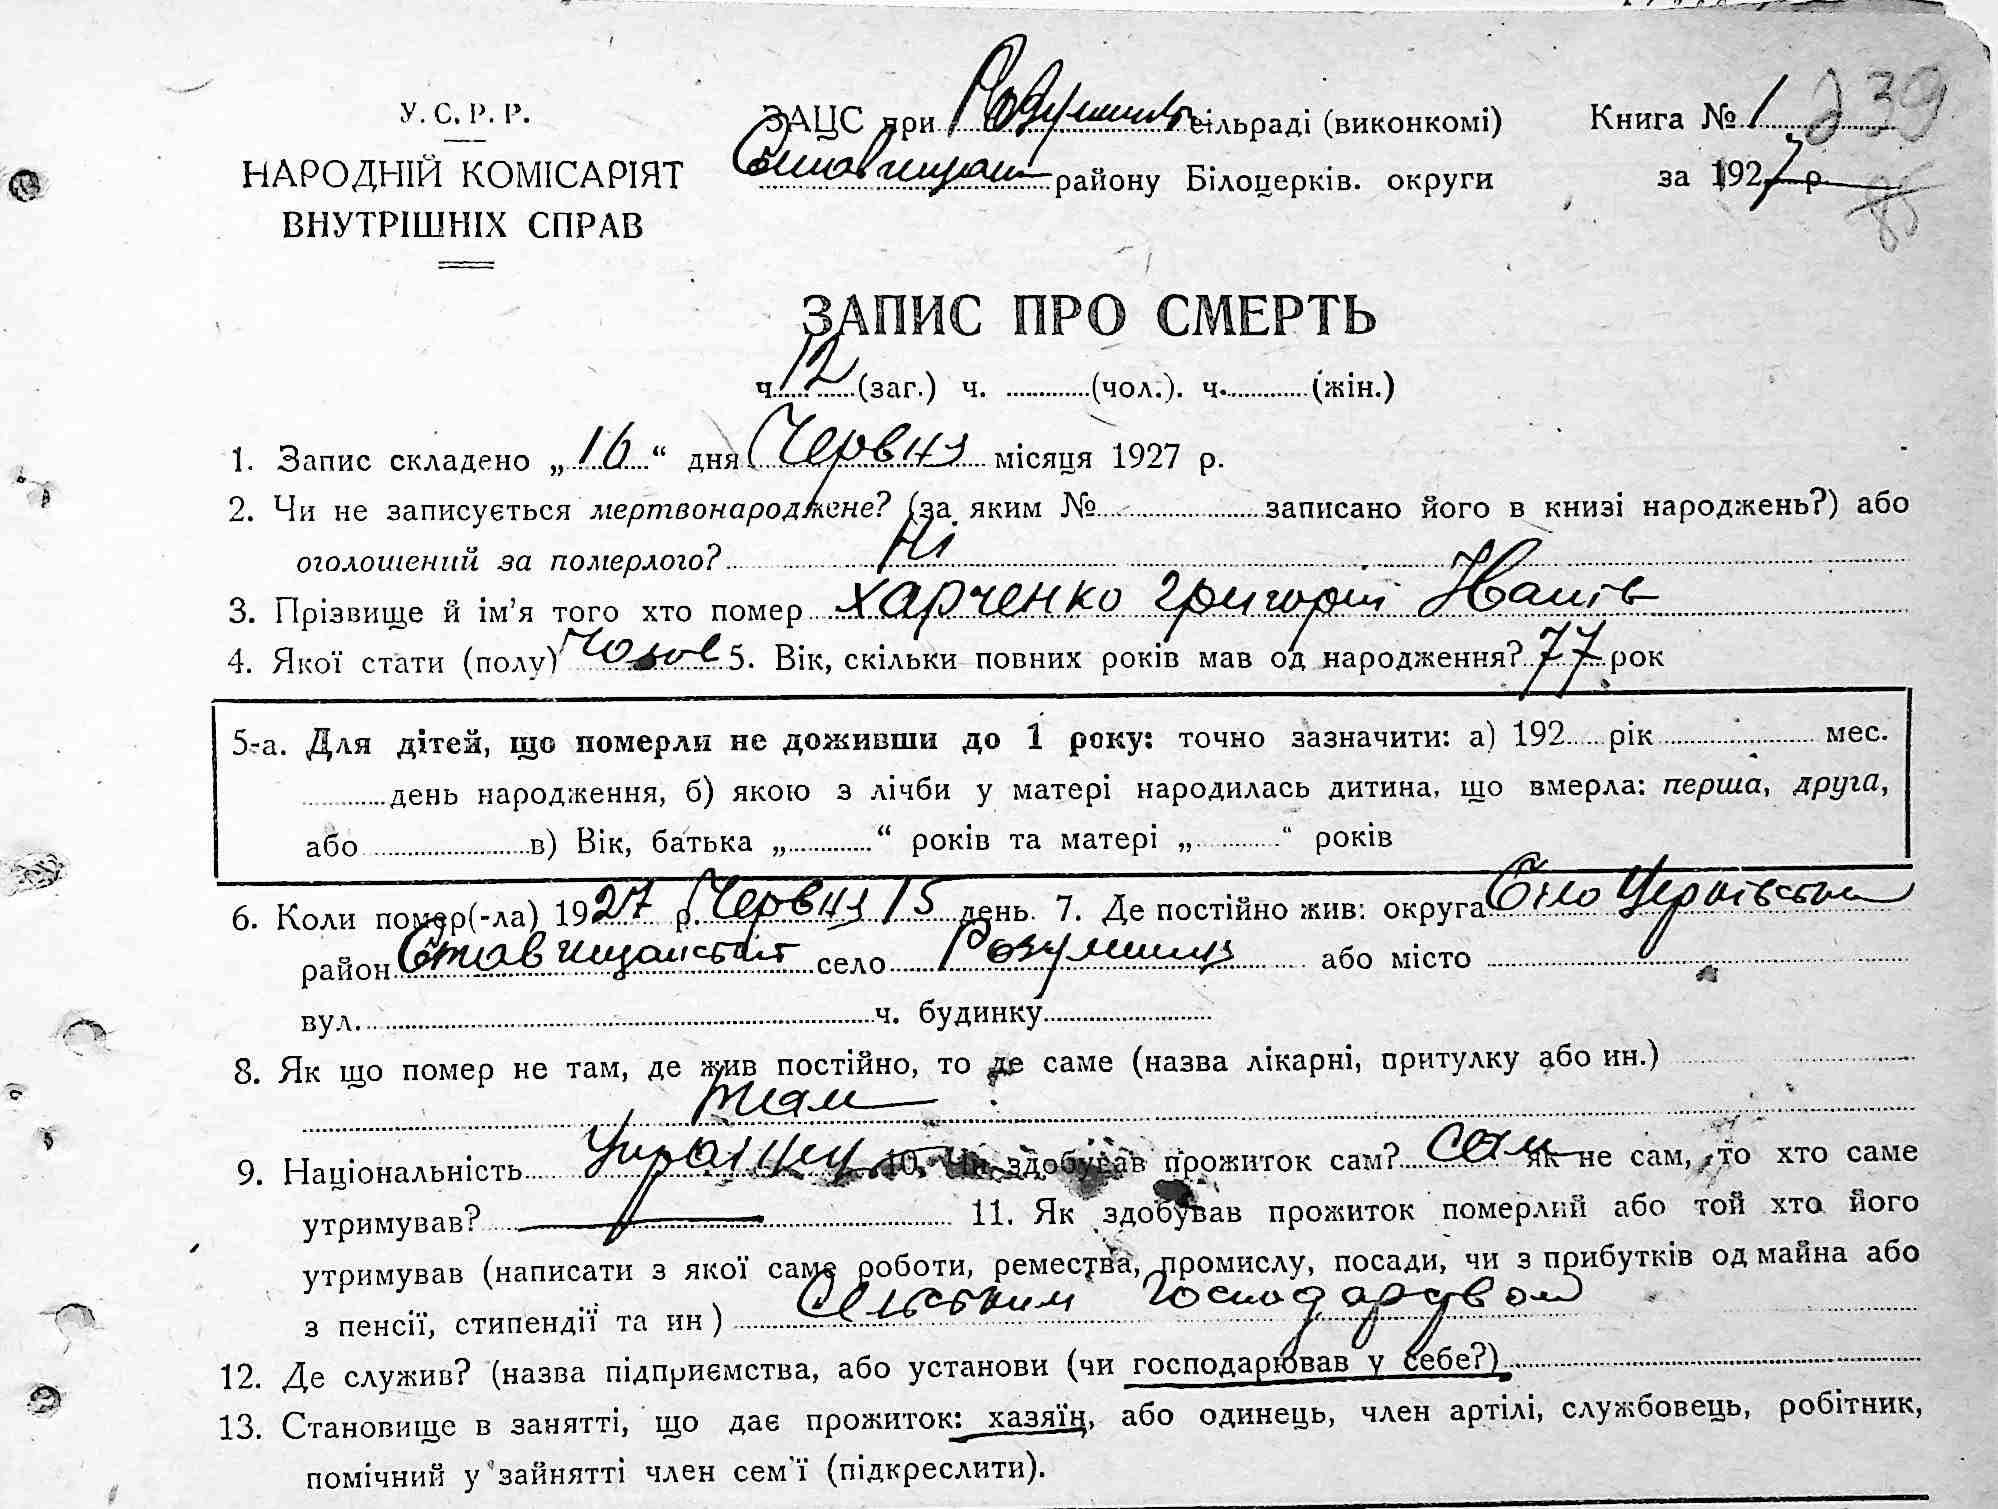 У. С. Р. Р.
НАРОДНІЙ КОМІСАРІЯТ
ВНУТРІШНІХ СПРАВ
ЗАЦС при Розумниц. сільраді (виконкомі)
Ставищан району Білоцерків. округи
Книга № 1 239
за 1927 р. 85
ЗАПИС ПРО СМЕРТЬ
ч. 12 (заг.) ч. (чол.). ч. (жін.)
1. Запис складено „16“ дня Червня місяця 1927 р.
2. Чи не записується мертвонароджене? (за яким № записано його в книзі народжень?) або
оголошений за померлого? Ні
3. Прізвище й ім’я того хто помер Харченко Григорій Іванів
4. Якої стати (полу) Чолов 5. Вік, скільки повних років мав од народження? 77 рок
5-а. Для дітей, що померли не доживши до 1 року: точно зазначити: а) 192 рік мес.
день народження, б) якою з лічби у матері народилась дитина, що вмерла: перша, друга,
або в) Вік, батька „ “ років та матері „ “ років
6. Коли помер(-ла) 1927 р. Червня 15 день. 7. Де постійно жив: округа Біло Церківська
район Ставищанський село Розумниця або місто
вул. ч. будинку
8. Як що помер не там, де жив постійно, то де саме (назва лікарні, притулку або ин.)
там
9. Національність Українец 10. Чи здобував прожиток сам? сам як не сам, то хто саме
утримував? 11. Як здобував прожиток померлий або той хто його
утримував (написати з якої саме роботи, ремества, промислу, посади, чи з прибутків од майна або
з пенсії, стипендії та ин ) Сельским Господарством
12. Де служив? (назва підприємства, або установи (чи господарював у себе?)
13. Становище в занятті, що дає прожиток: хазяїн, або одинець, член артілі, службовець, робітник,
помічний у зайнятті член сем’ї (підкреслити).